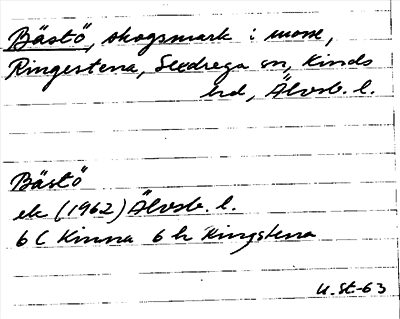 Bästö, skogsmark i mosse,
Ringestena, Sexdrega sn, Kinds
hd, Älvsb. l.
Bästö
ek (1962) Älvsb. l.
6 C Kinna 6 h Ringstena
U. St-63